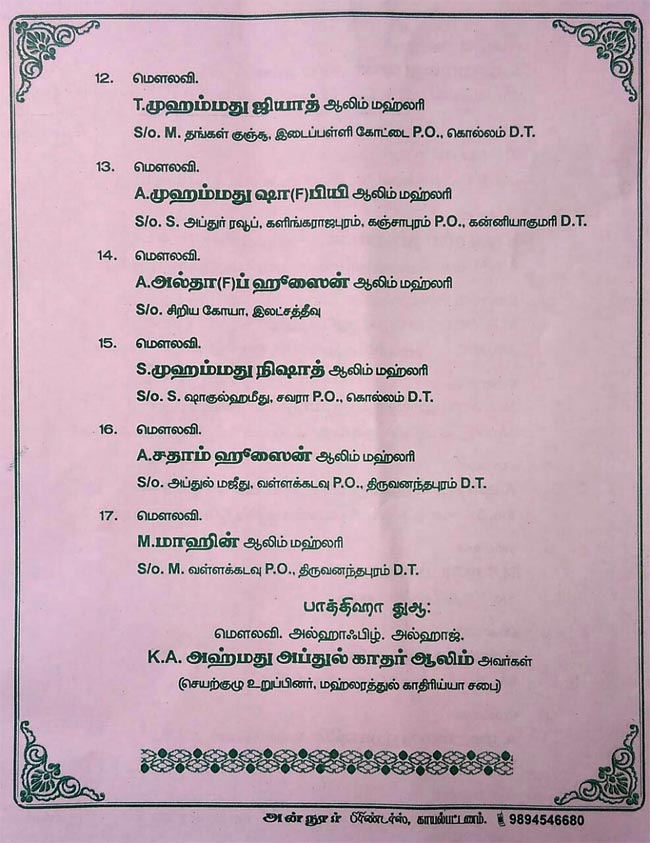 12. மௌலவி.
T.முஹம்மது ஜியாத் ஆலிம் மஹ்லரி
S/o. M. தங்கள் குஞ்சு, இடைப்பள்ளி கோட்டை P.O., கொல்லம் D.T.
13. மௌலவி.
A.முஹம்மது ஷா(F)பியி ஆலிம் மஹ்லரி
S/o. S. அப்துர் ரவூப், களிங்கராஜபுரம், கஞ்சாபுரம் P.O., கன்னியாகுமரி D.T.
14. மௌலவி.
A.அல்தா(F)ப் ஹுஸைன் ஆலிம் மஹ்லரி
S/o. சிறிய கோயா, இலட்சத்தீவு
15. மௌலவி.
S.முஹம்மது நிஷாத் ஆலிம் மஹ்லரி
S/o. S. ஷாகுல்ஹமீது, சவரா P.O., கொல்லம் D.T.
16. மௌலவி.
A.சதாம் ஹுஸைன் ஆலிம் மஹ்லரி
S/o. அப்துல் மஜீது, வள்ளக்கடவு P.O., திருவனந்தபுரம் D.T.
17. மௌலவி.
M.மாஹின் ஆலிம் மஹ்லரி
S/o. M. வள்ளக்கடவு P.O., திருவனந்தபுரம் D.T.
பாத்திஹா துஆ:
மௌலவி. அல்ஹாஃபிழ். அல்ஹாஜ்.
K.A. அஹ்மது அப்துல் காதர் ஆலிம் அவர்கள்
(செயற்குழு உறுப்பினர், மஹ்லரத்துல் காதிரிய்யா சபை)
அன்நூர் பிரிண்டர்ஸ், காயல்பட்டணம். 9894546680